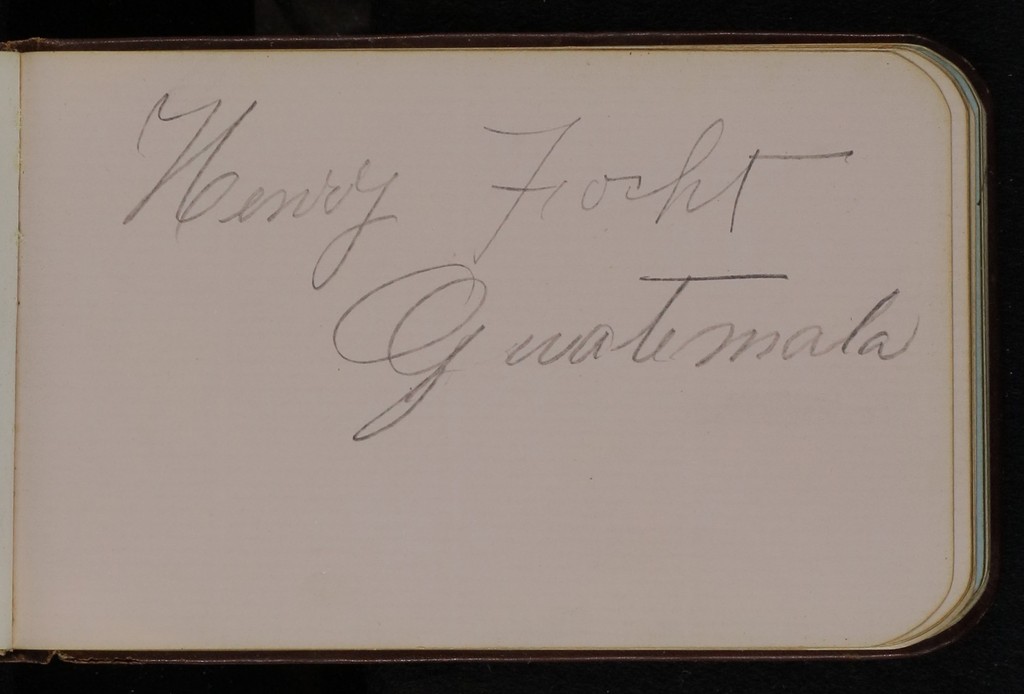 Henry Focht
Guatemala